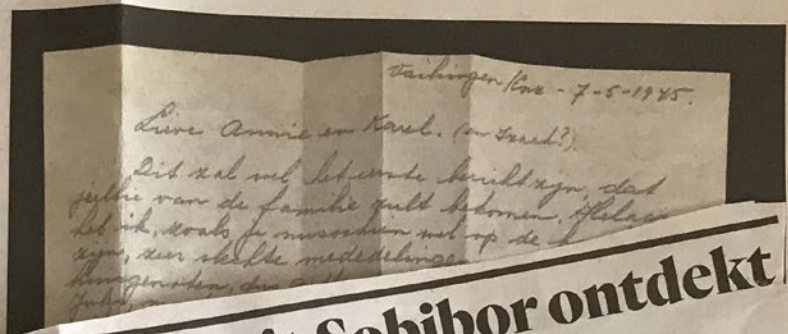 Vaihingen/Enz - 7-5-1945.
Lieve Annie en Karel. (en Izaak?)
Dit zal wel het eerste bericht zijn, dat
jullie van de familie zult bekomen. Helaas
heb ik, zoals je misschien wel op de
zijn, zeer slechte mededelingen
Sobibor ontdekt